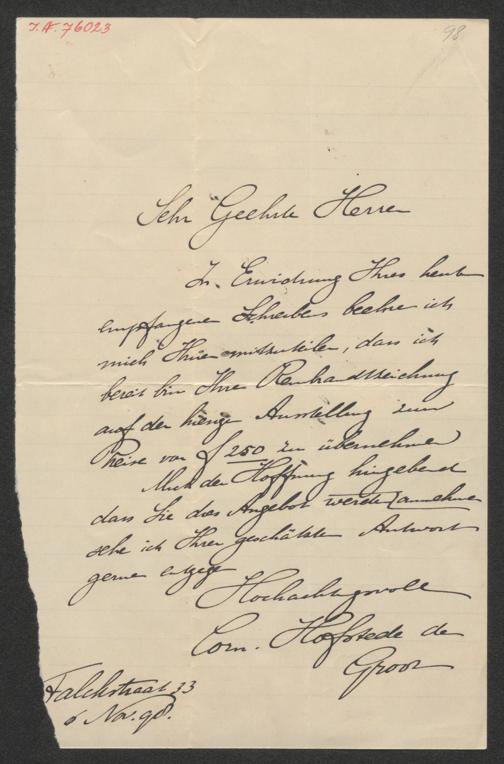 I.N. 76023
98
Sehr Geehrte Herren
In Erwidrung Ihres heute
empfangenen Schreibens beehre ich
mich Ihnen mitzuteilen, dass ich
bereit bin Ihre Rembrandtzeichnung
auf der hiesigen Ausstellung zum
Preise von f 250 zu übernehmen
Mich der Hoffnung hingebend
dass Sie das Angebot werden annehmen
sehe ich Ihrer geschätzten Antwort
gerne entgegen
Hochachtungsvoll
Corn. Hofstede de
Groot
Falckstraat 33
6 Nov. 98.